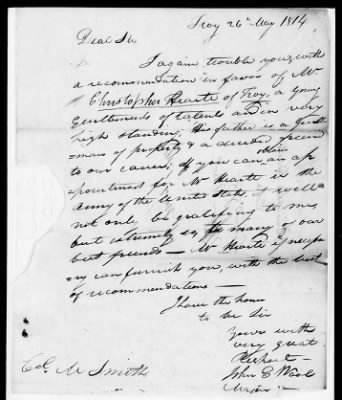 Troy 26th May 1814
Dear Sir
I again trouble you with
a recommendation in favor of Mr
Christopher Hearte of Troy, a young
Gentlemens of talents and in very
high standing, his father is a Gentle
man of property & a decided freend
to our cause; If you can obtain an ap
pointment for Mr Hearte in the
Army of the United States, it will
not only be gratifying to me,
but extremely so, to many of our
best freends — Mr Hearte if necessa
ry can furnish you, with the best
of recommendations —
I have the honor
to be Sir
Yours with
very great
Respect —
John E Wool
Major
Col. M Smith